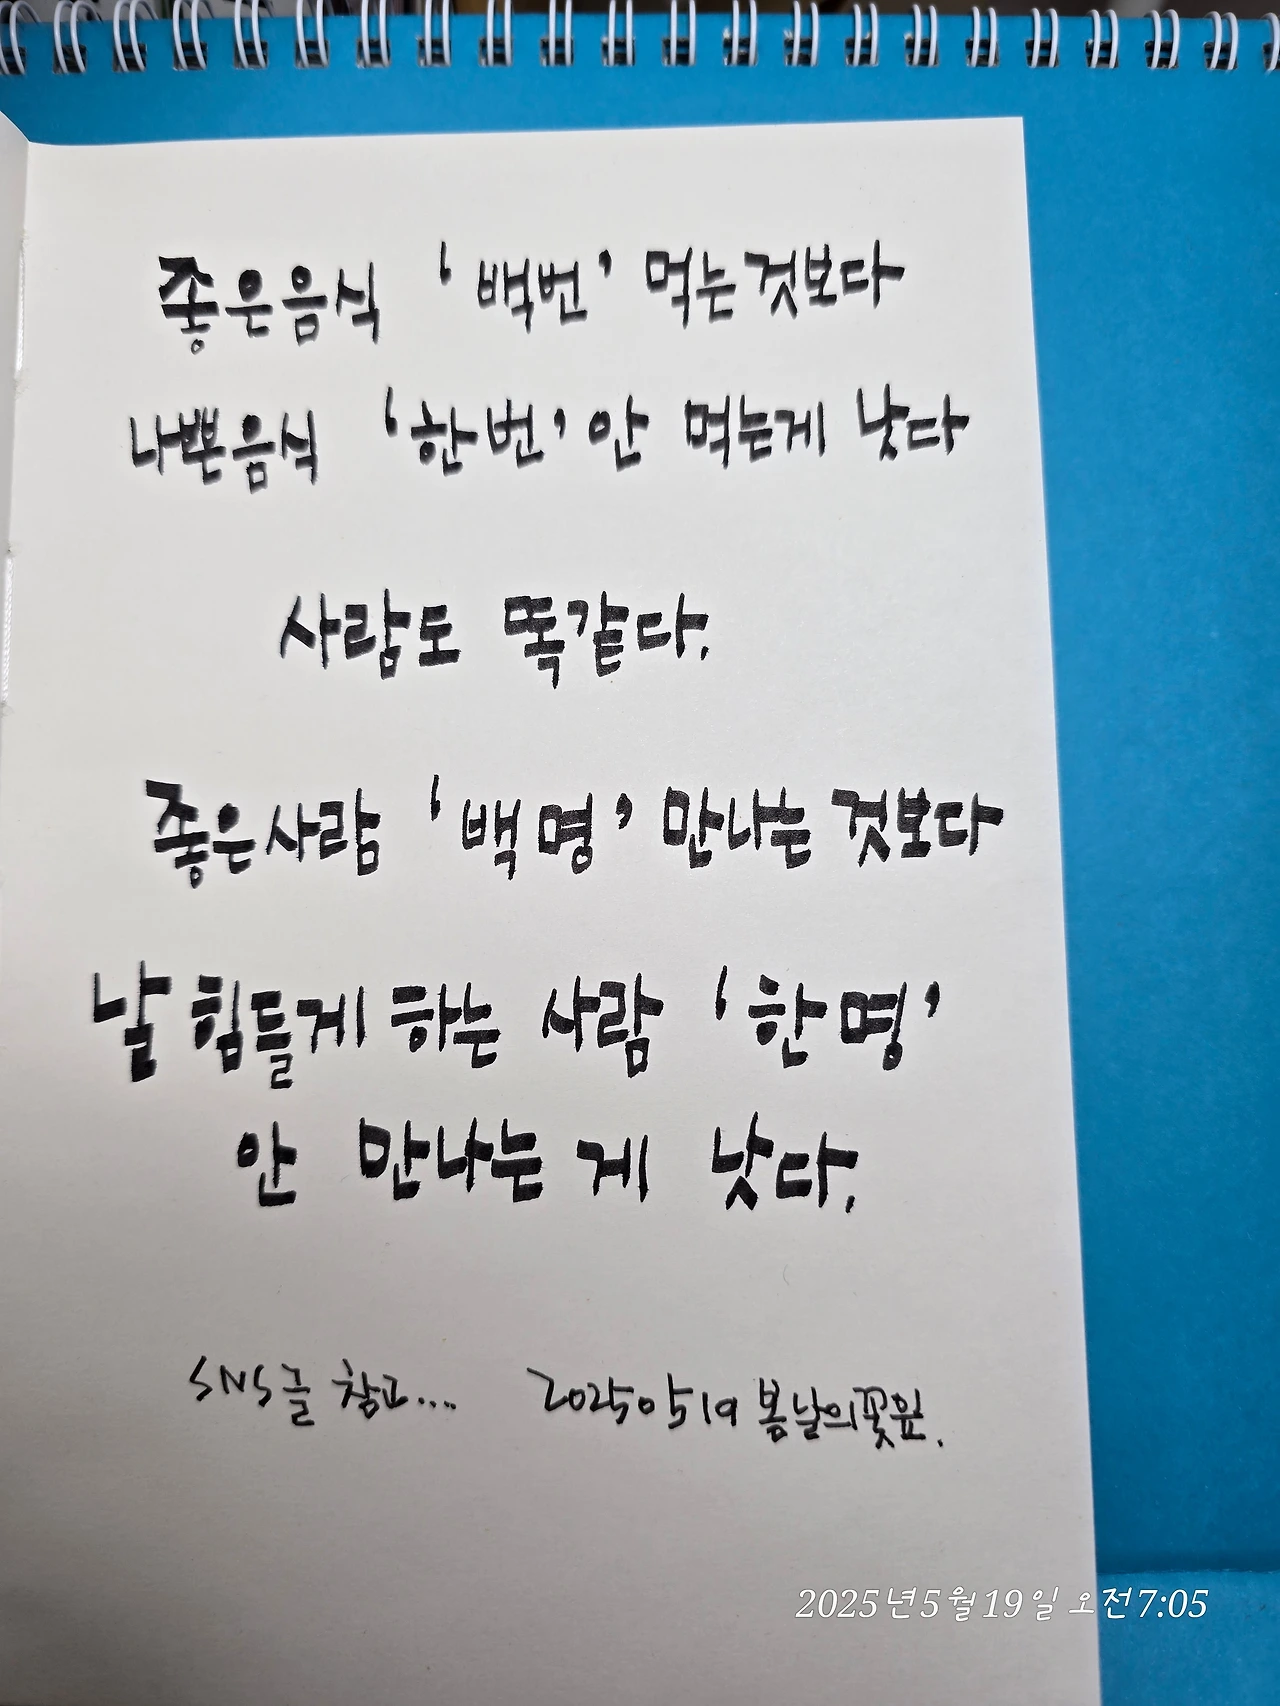 좋은음식 '백번' 먹는것보다
나쁜음식 '한번' 안 먹는게 낫다
사람도 똑같다.
좋은사람 '백명' 만나는것보다
날 힘들게 하는 사람 '한명'
안 만나는게 낫다.
SNS글 참고... 20250519 봄날의꽃잎.
2025년 5월 19일 오전 7:05